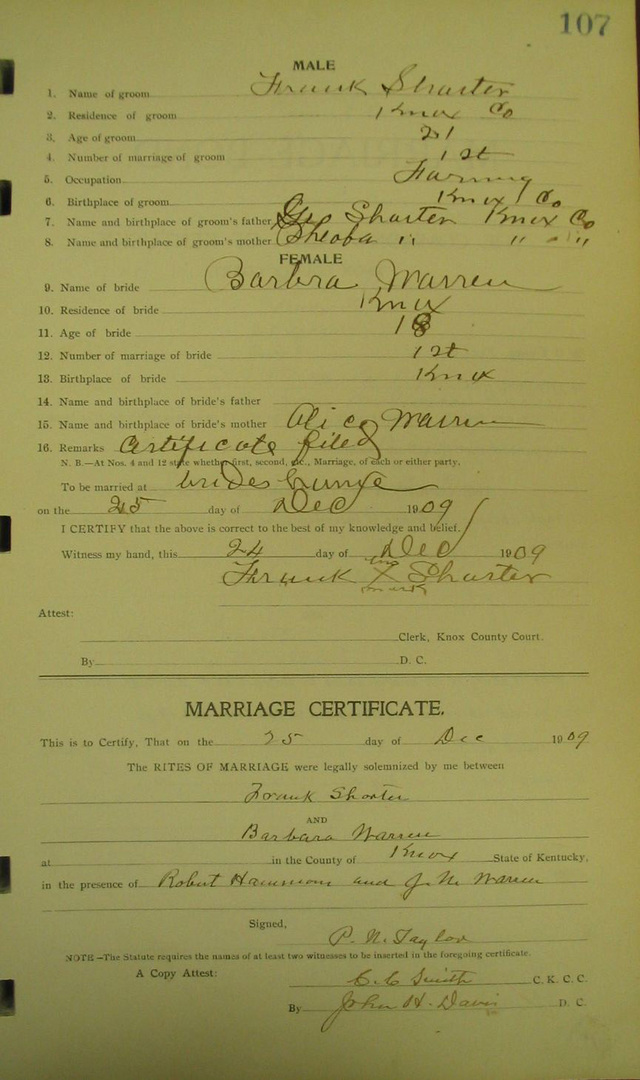 107
MALE
1. Name of groom Frank Sharter
2. Residence of groom Knox Co
3. Age of groom 21
4. Number of marriage of groom 1st
5. Occupation Farming
6. Birthplace of groom Knox Co
7. Name and birthplace of groom's father Geo Sharter Knox Co
8. Name and birthplace of groom's mother Sheoba " " "
FEMALE
9. Name of bride Barbra Warren
10. Residence of bride Knox
11. Age of bride 18
12. Number of marriage of bride 1st
13. Birthplace of bride Knox
14. Name and birthplace of bride's father
15. Name and birthplace of bride's mother Alice Warren
16. Remarks Certificate filed
N. B.—At Nos. 4 and 12 state whether first, second, etc., Marriage, of each or either party.
To be married at brides
on the 25 day of Dec 1909
I CERTIFY that the above is correct to the best of my knowledge and belief.
Witness my hand, this 24 day of Dec 1909
Frank X Sharter
mark
Attest:
Clerk, Knox County Court.
By D. C.
MARRIAGE CERTIFICATE.
This is to Certify, That on the 25 day of Dec 1909
The RITES OF MARRIAGE were legally solemnized by me between
Frank Shorter
AND
Barbara Warren
at in the County of Knox State of Kentucky,
in the presence of Robert Hammons and J. M. Warren
Signed,
P. N. Taylor
NOTE—The Statute requires the names of at least two witnesses to be inserted in the foregoing certificate.
A Copy Attest: C. C. Smith C. K. C. C.
By John H. Davis D. C.